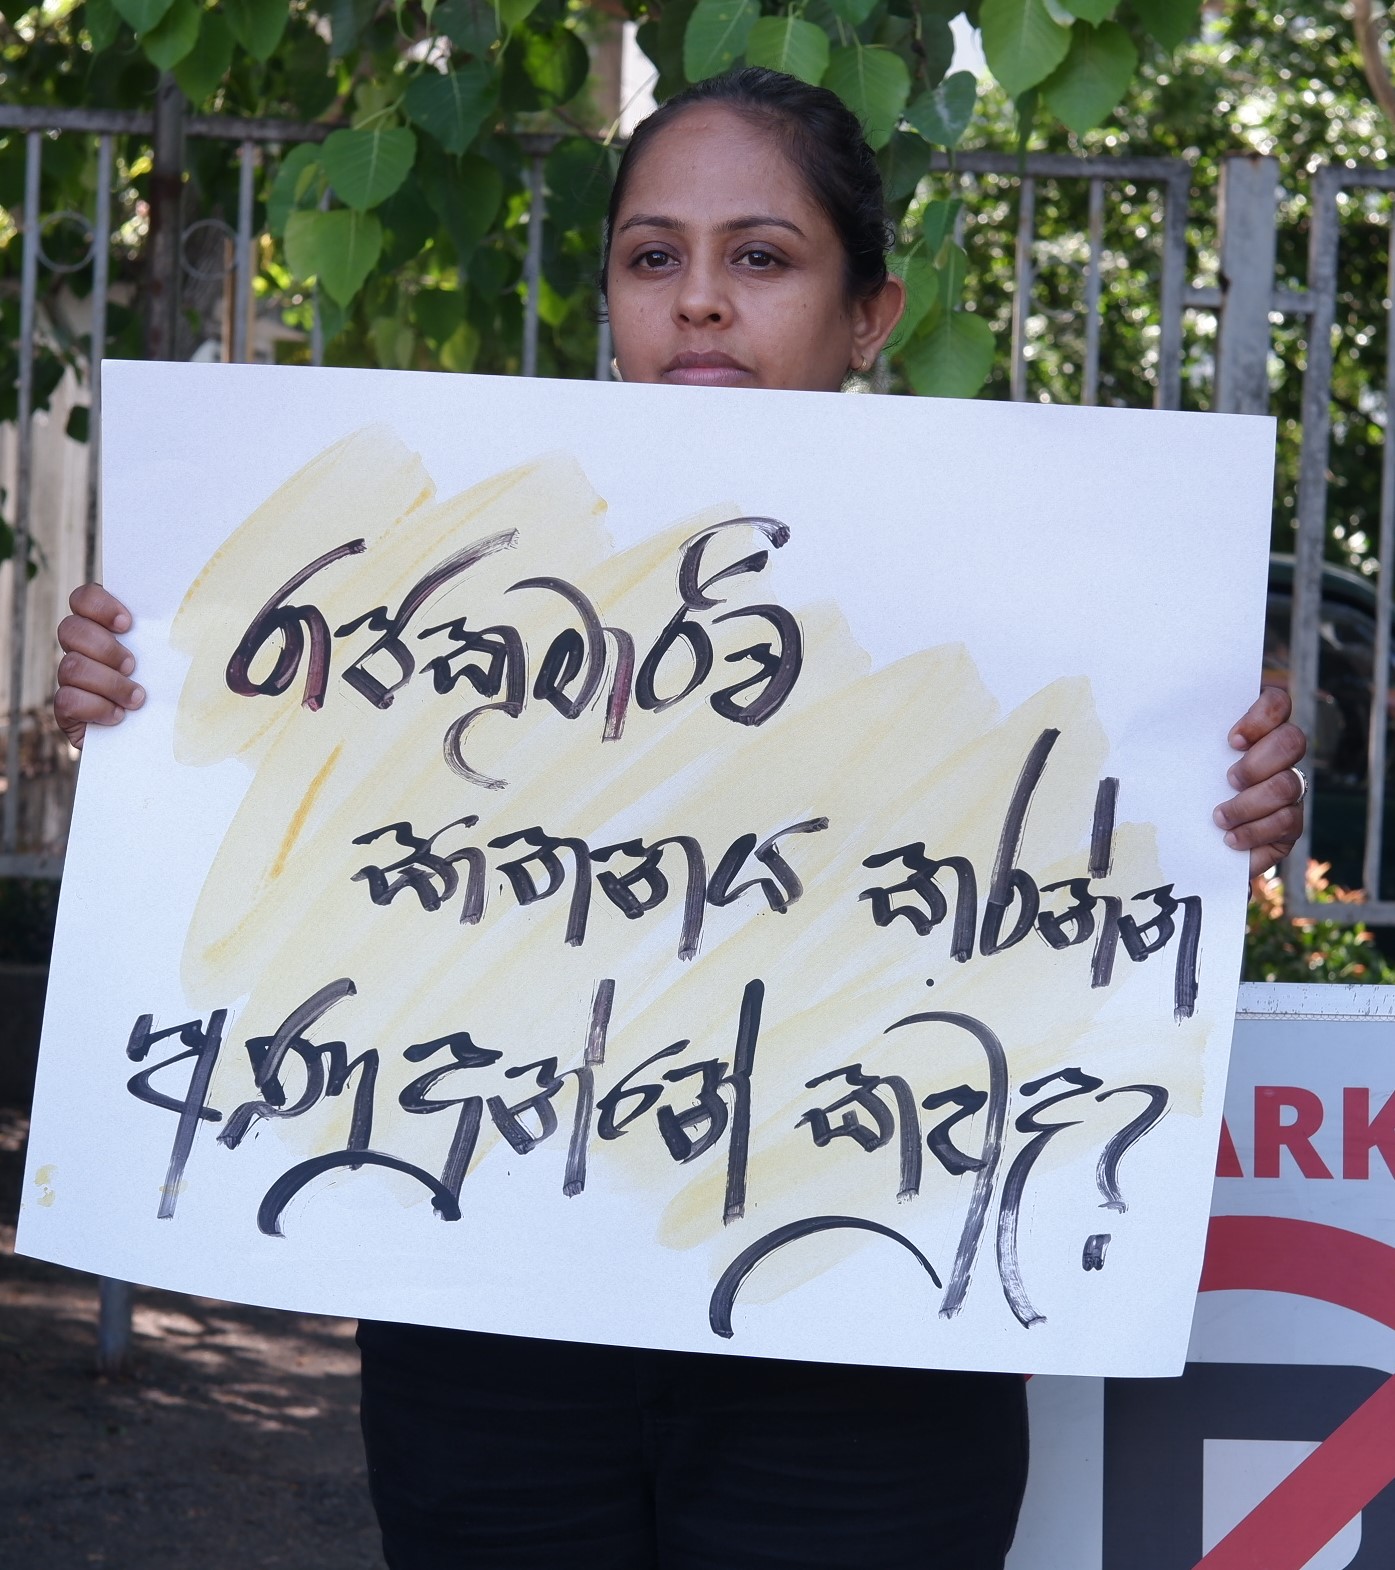 රාජකුමාරිව
ඝාතනය කරන්න
අණ දුන්නේ කවුද?
ARK